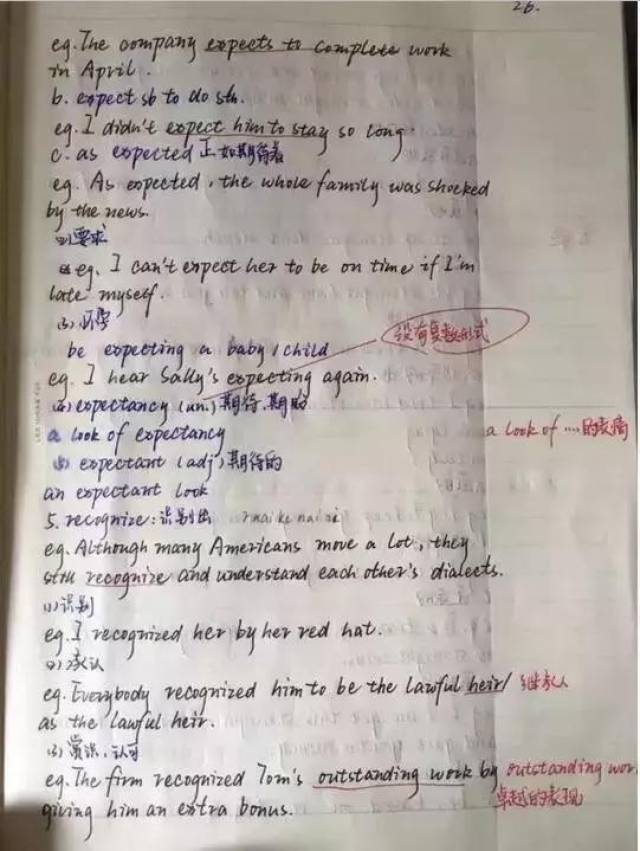 26.
eg. The company expects to complete work
in April.
b. expect sb to do sth.
eg. I didn't expect him to stay so long.
c. as expected 正如期待者
eg. As expected, the whole family was shocked
by the news.
(2) 要求
eg. I can't expect her to be on time if I'm
late myself.
(3) 怀孕
be expecting a baby / child
没有复数形式
eg. I hear Sally's expecting again.
expectancy (un.) 期待,期盼
a look of expectancy
a look of .... 的表情
expectant (adj) 期待的
an expectant look
5. recognize: 识别出
eg. Although many Americans move a lot, they
still recognize and understand each other's dialects.
(1) 识别
eg. I recognized her by her red hat.
(2) 承认
eg. Everybody recognized him to be the lawful heir / 继承人
as the lawful heir.
(3) 赏识,认可
eg. The firm recognized Tom's outstanding work by outstanding wor
giving him an extra bonus. 卓越的表现